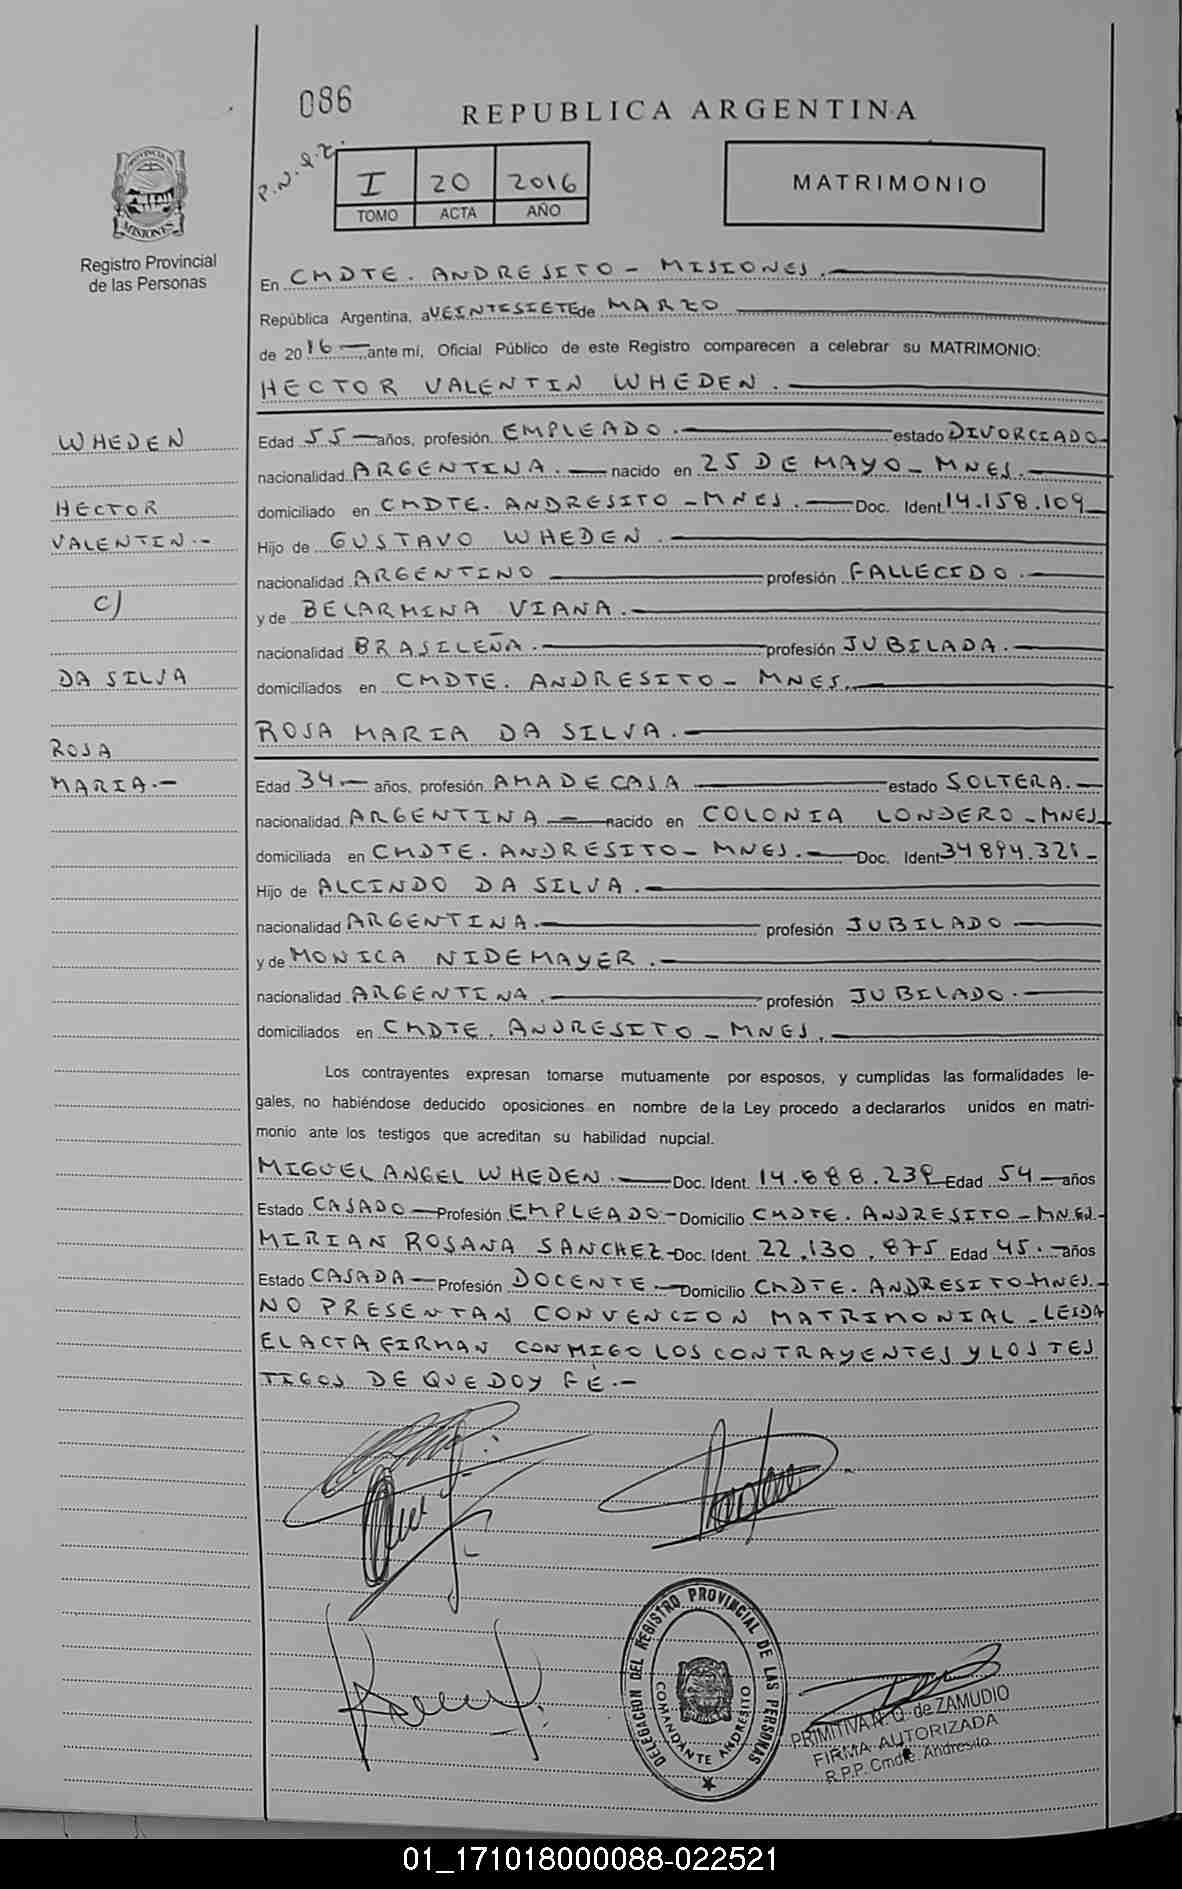 086
REPUBLICA ARGENTINA
P.N.Q.Z.
I 20 2016
TOMO ACTA AÑO
MATRIMONIO
PROVINCIA DE MISIONES
Registro Provincial
de las Personas
En CMDTE. ANDRESITO - MISIONES.
República Argentina, a VEINTESIETE de MARZO
de 2016 ,ante mí, Oficial Público de este Registro comparecen a celebrar su MATRIMONIO:
HECTOR VALENTIN WHEDEN.
WHEDEN
HECTOR
VALENTIN.-
C/
DA SILVA
ROSA
MARIA.-
Edad 55 años, profesión EMPLEADO. estado DIVORCIADO
nacionalidad ARGENTINA. nacido en 25 DE MAYO - MNES.
domiciliado en CMDTE. ANDRESITO - MNES. Doc. Ident. 14.158.109
Hijo de GUSTAVO WHEDEN.
nacionalidad ARGENTINO profesión FALLECIDO.
y de BELARMINA VIANA.
nacionalidad BRASILEÑA. profesión JUBILADA.
domiciliados en CMDTE. ANDRESITO - MNES.
ROSA MARIA DA SILVA.
Edad 34 años, profesión AMA DE CASA estado SOLTERA.
nacionalidad ARGENTINA nacido en COLONIA LONDERO - MNES
domiciliada en CMDTE. ANDRESITO - MNES. Doc. Ident 34894.321
Hijo de ALCINDO DA SILVA.
nacionalidad ARGENTINA. profesión JUBILADO
y de MONICA NIDEMAYER.
nacionalidad ARGENTINA. profesión JUBILADO.
domiciliados en CMDTE. ANDRESITO - MNES.
Los contrayentes expresan tomarse mutuamente por esposos, y cumplidas las formalidades le-
gales, no habiéndose deducido oposiciones en nombre de la Ley procedo a declararlos unidos en matri-
monio ante los testigos que acreditan su habilidad nupcial.
MIGUEL ANGEL WHEDEN. Doc. Ident. 14.888.239 Edad 54 años
Estado CASADO Profesión EMPLEADO - Domicilio CMDTE. ANDRESITO - MNES.
MIRIAN ROSANA SANCHEZ - Doc. Ident. 22.130.875 Edad 45. años
Estado CASADA Profesión DOCENTE Domicilio CMDTE. ANDRESITO - MNES.
NO PRESENTAN CONVENCION MATRIMONIAL - LEIDA
EL ACTA FIRMAN CONMIGO LOS CONTRAYENTES Y LOS TES
TIGOS DE QUE DOY FÉ.-
DELEGACION DEL REGISTRO PROVINCIAL DE LAS PERSONAS
COMANDANTE ANDRESITO
PRIMITIVA N. Q. de ZAMUDIO
FIRMA AUTORIZADA
R.P.P. Cmdte. Andresito
01_171018000088-022521